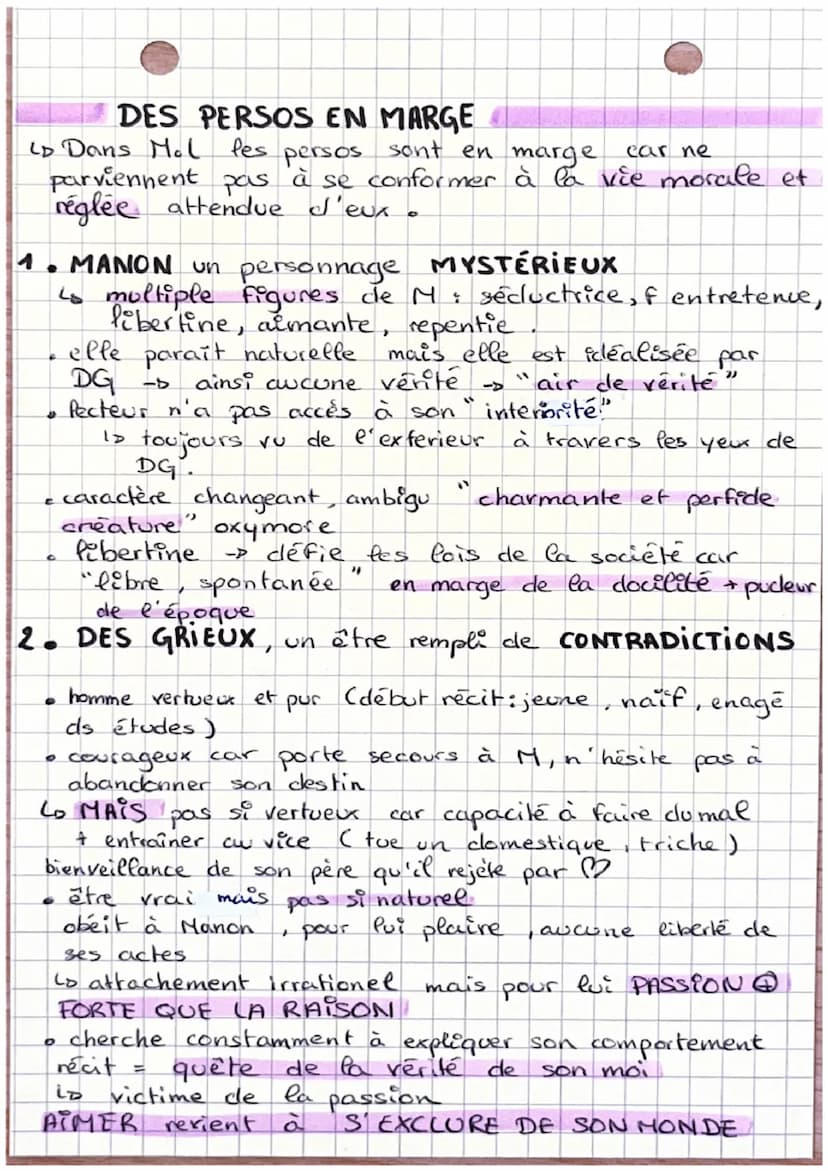 DES PERSOS EN MARGE
↳ Dans M.L les persos sont en marge car ne
parviennent pas à se conformer à la vie morale et
réglée attendue d'eux.
1. MANON un personnage MYSTÉRIEUX
↳ multiple figures de M : séductrice, f entretenue,
libertine, aimante, repentie.
• elle paraît naturelle mais elle est idéalisée par
DG → ainsi aucune vérité → "air de vérité"
• lecteur n'a pas accès à son "interiorité"
↳ toujours vu de l'exterieur à travers les yeux de
DG.
• caractère changeant, ambigu "charmante et perfide
créature" oxymore
• libertine → défie les lois de la société car
"libre, spontanée" en marge de la docilité + pudeur
de l'époque
2. DES GRIEUX, un être rempli de CONTRADICTIONS
• homme vertueux et pur (début récit : jeune, naïf, enagé
ds études)
• courageux car porte secours à M, n'hésite pas à
abandonner son destin
↳ MAIS pas si vertueux car capacité à faire du mal
+ entraîner au vice (tue un domestique, triche)
bienveillance de son père qu'il rejete par ♡
• être vrai mais pas si naturel
obéit à Manon, pour lui plaire, aucune liberté de
ses actes
↳ attachement irrationel mais pour lui PASSION ⊕
FORTE QUE LA RAISON
• cherche constamment à expliquer son comportement
récit = quête de la vérité de son moi
↳ victime de la passion
AIMER revient à S'EXCLURE DE SON MONDE